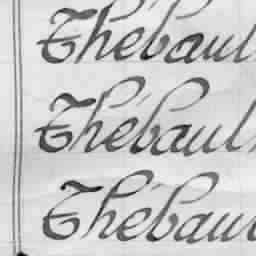 Thébaul
Thébaul
Thébau